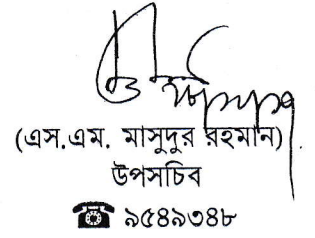 (এস.এম. মাসুদুর রহমান)
উপসচিব
☎ ৯৫৪৯৩৪৮